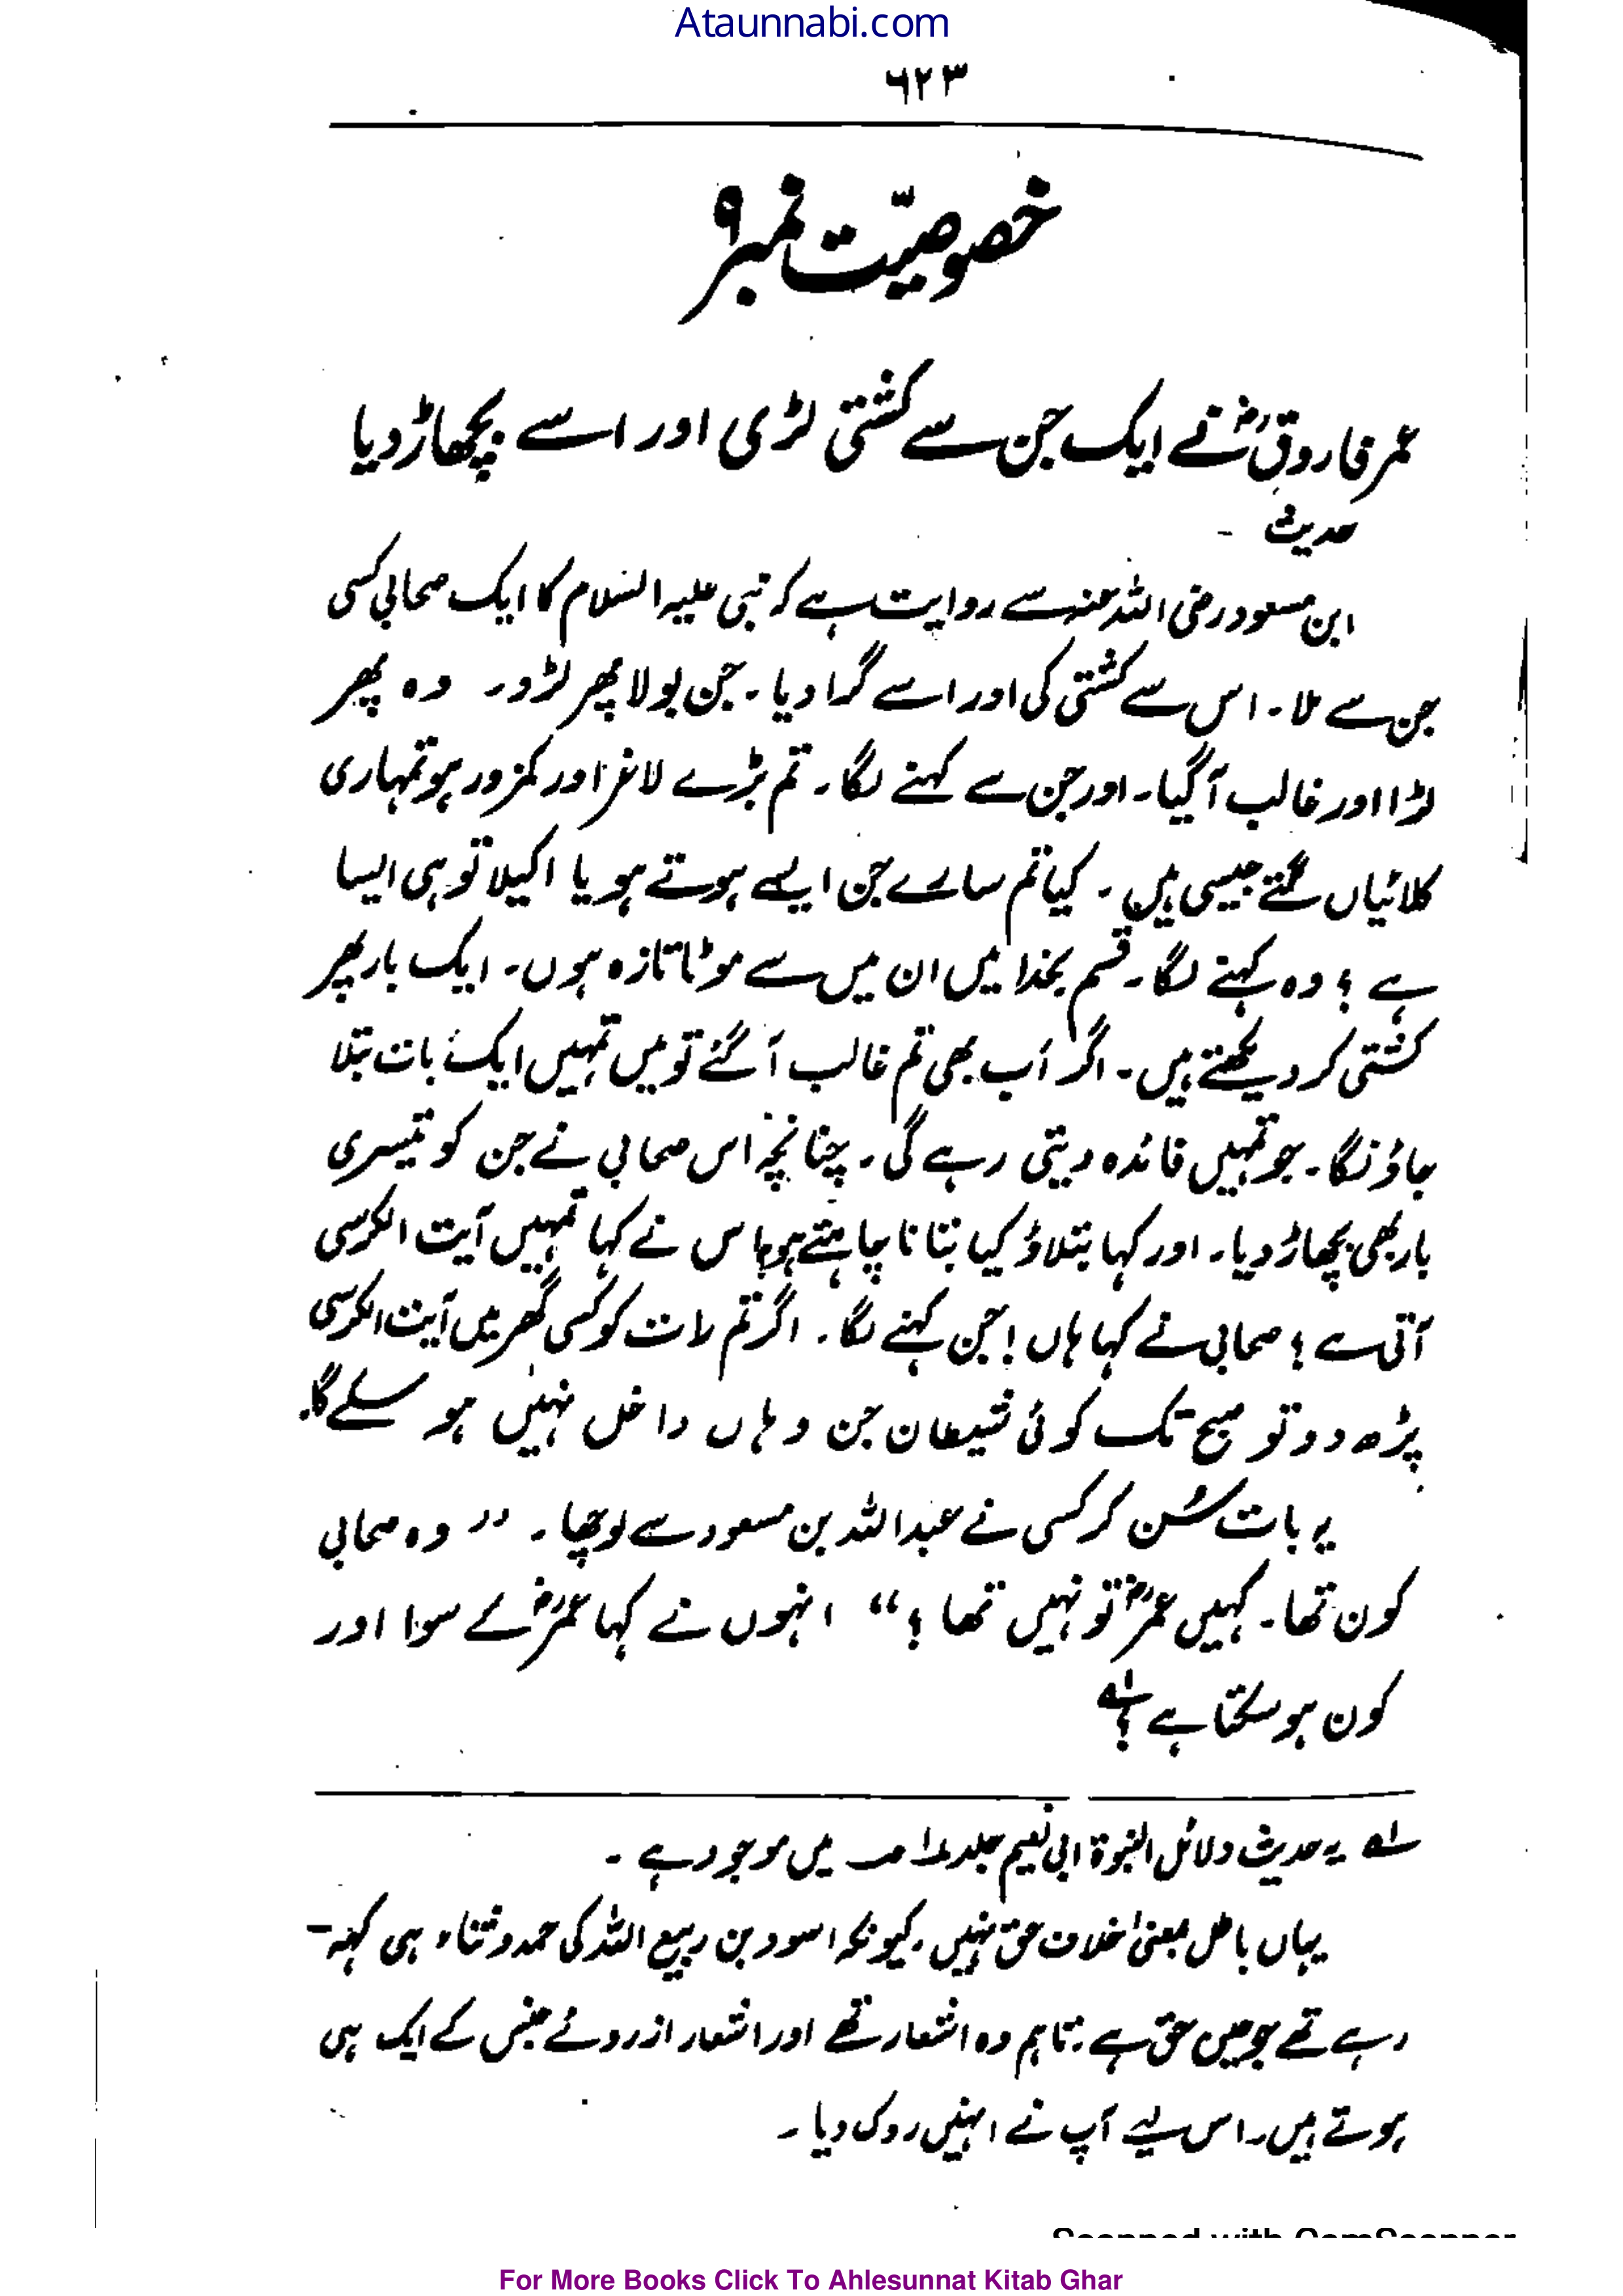 Ataunnabi.com
٦٢٣
خصوصیّت نمبر ۹
عمر فاروقؓ نے ایک جن سے کشتی لڑی اور اسے پچھاڑ دیا
حدیث
ابن مسعود رضی اللہ عنہ سے روایت ہے کہ نبی علیہ السلام کا ایک صحابی کسی
جن سے ملا۔ اس سے کشتی کی اور اسے گرا دیا۔ جن بولا پھر لڑو۔ وہ پھر
لڑا اور غالب آگیا۔ اور جن سے کہنے لگا۔ تم بڑے لاغر اور کمزور ہو تمہاری
کلائیاں کتے جیسی ہیں۔ کیا تم سارے جن ایسے ہوتے ہو یا اکیلا تو ہی ایسا
ہے ؟ وہ کہنے لگا۔ قسم بخدا میں ان میں سے موٹا تازہ ہوں۔ ایک بار پھر
کشتی کر دیکھتے ہیں۔ اگر اب بھی تم غالب آگئے تو میں تمہیں ایک بات بتلا
جاؤنگا۔ جو تمہیں فائدہ دیتی رہے گی۔ چنانچہ اس صحابی نے جن کو تیسری
بار بھی پچھاڑ دیا۔ اور کہا بتلاؤ کیا بتانا چاہتے ہو؟ اس نے کہا تمہیں آیت الکرسی
آتی ہے ؟ صحابی نے کہا ہاں ! جن کہنے لگا۔ اگر تم رات کو کسی گھر میں آیت الکرسی
پڑھ دو تو صبح تک کوئی شیطان جن وہاں داخل نہیں ہو سکے گا۔
یہ بات سُن کر کسی نے عبداللہ بن مسعود سے پوچھا۔ ”وہ صحابی
کون تھا۔ کہیں عمرؓ تو نہیں تھا ؟“ انہوں نے کہا عمرؓ کے سوا اور
کون ہو سکتا ہے ؟ ۱؎
۱؎ یہ حدیث دلائل النبوۃ ابی نعیم جلد ۱ ص میں موجود ہے۔
یہاں باطل بمعنیٰ خلاف حق نہیں، کیونکہ اسود بن ربیع اللہ کی حمد و ثناء ہی کہہ-
رہے تھے جو عین حق ہے، تاہم وہ اشعار تھے اور اشعار از روئے جنس کے ایک ہی
ہوتے ہیں۔ اس لیے آپ نے انہیں روک دیا۔
Scanned with CamScanner
For More Books Click To Ahlesunnat Kitab Ghar